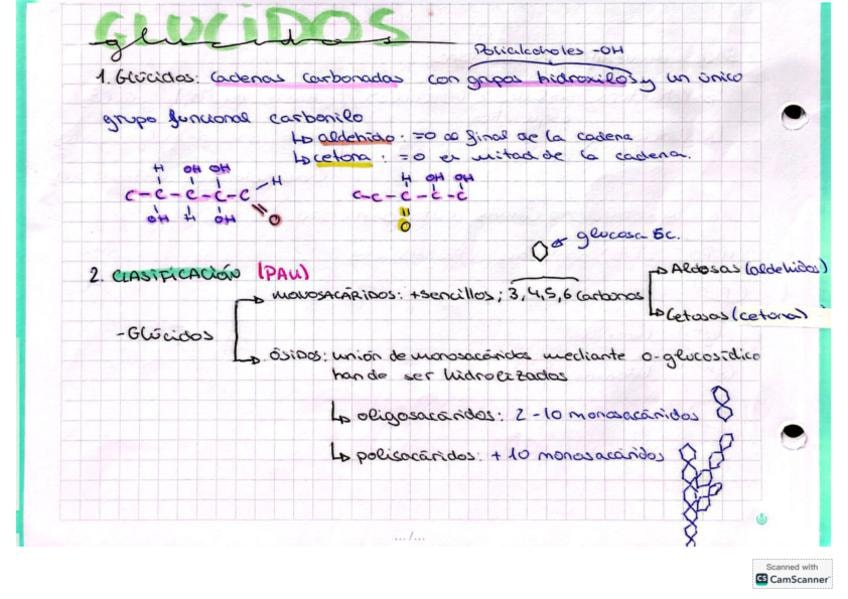 GLUCIDOS
glucidos
Polialcoholes -OH
1. Glúcidos: cadenas carbonadas con grupos hidroxilos y un único
grupo funcional carbonilo
↳ aldehido : =O al final de la cadena
↳ cetona : =O en mitad de la cadena.
H OH OH
C-C-C-C-C-H
OH H OH O
H OH OH
C-C-C-C-C
O
glucosa 6c.
2. CLASIFICACIÓN (PAU)
Aldosas (aldehidos)
MONOSACÁRIDOS: +sencillos; 3,4,5,6 carbonos
Cetosas (cetona)
-Glúcidos
ÓSIDOS: unión de monosacáridos mediante o-glucosídico
hando ser hidrolizados
↳ oligosacáridos: 2-10 monosacáridos
↳ polisacáridos: +10 monosacáridos
.../...
Scanned with
CS CamScanner